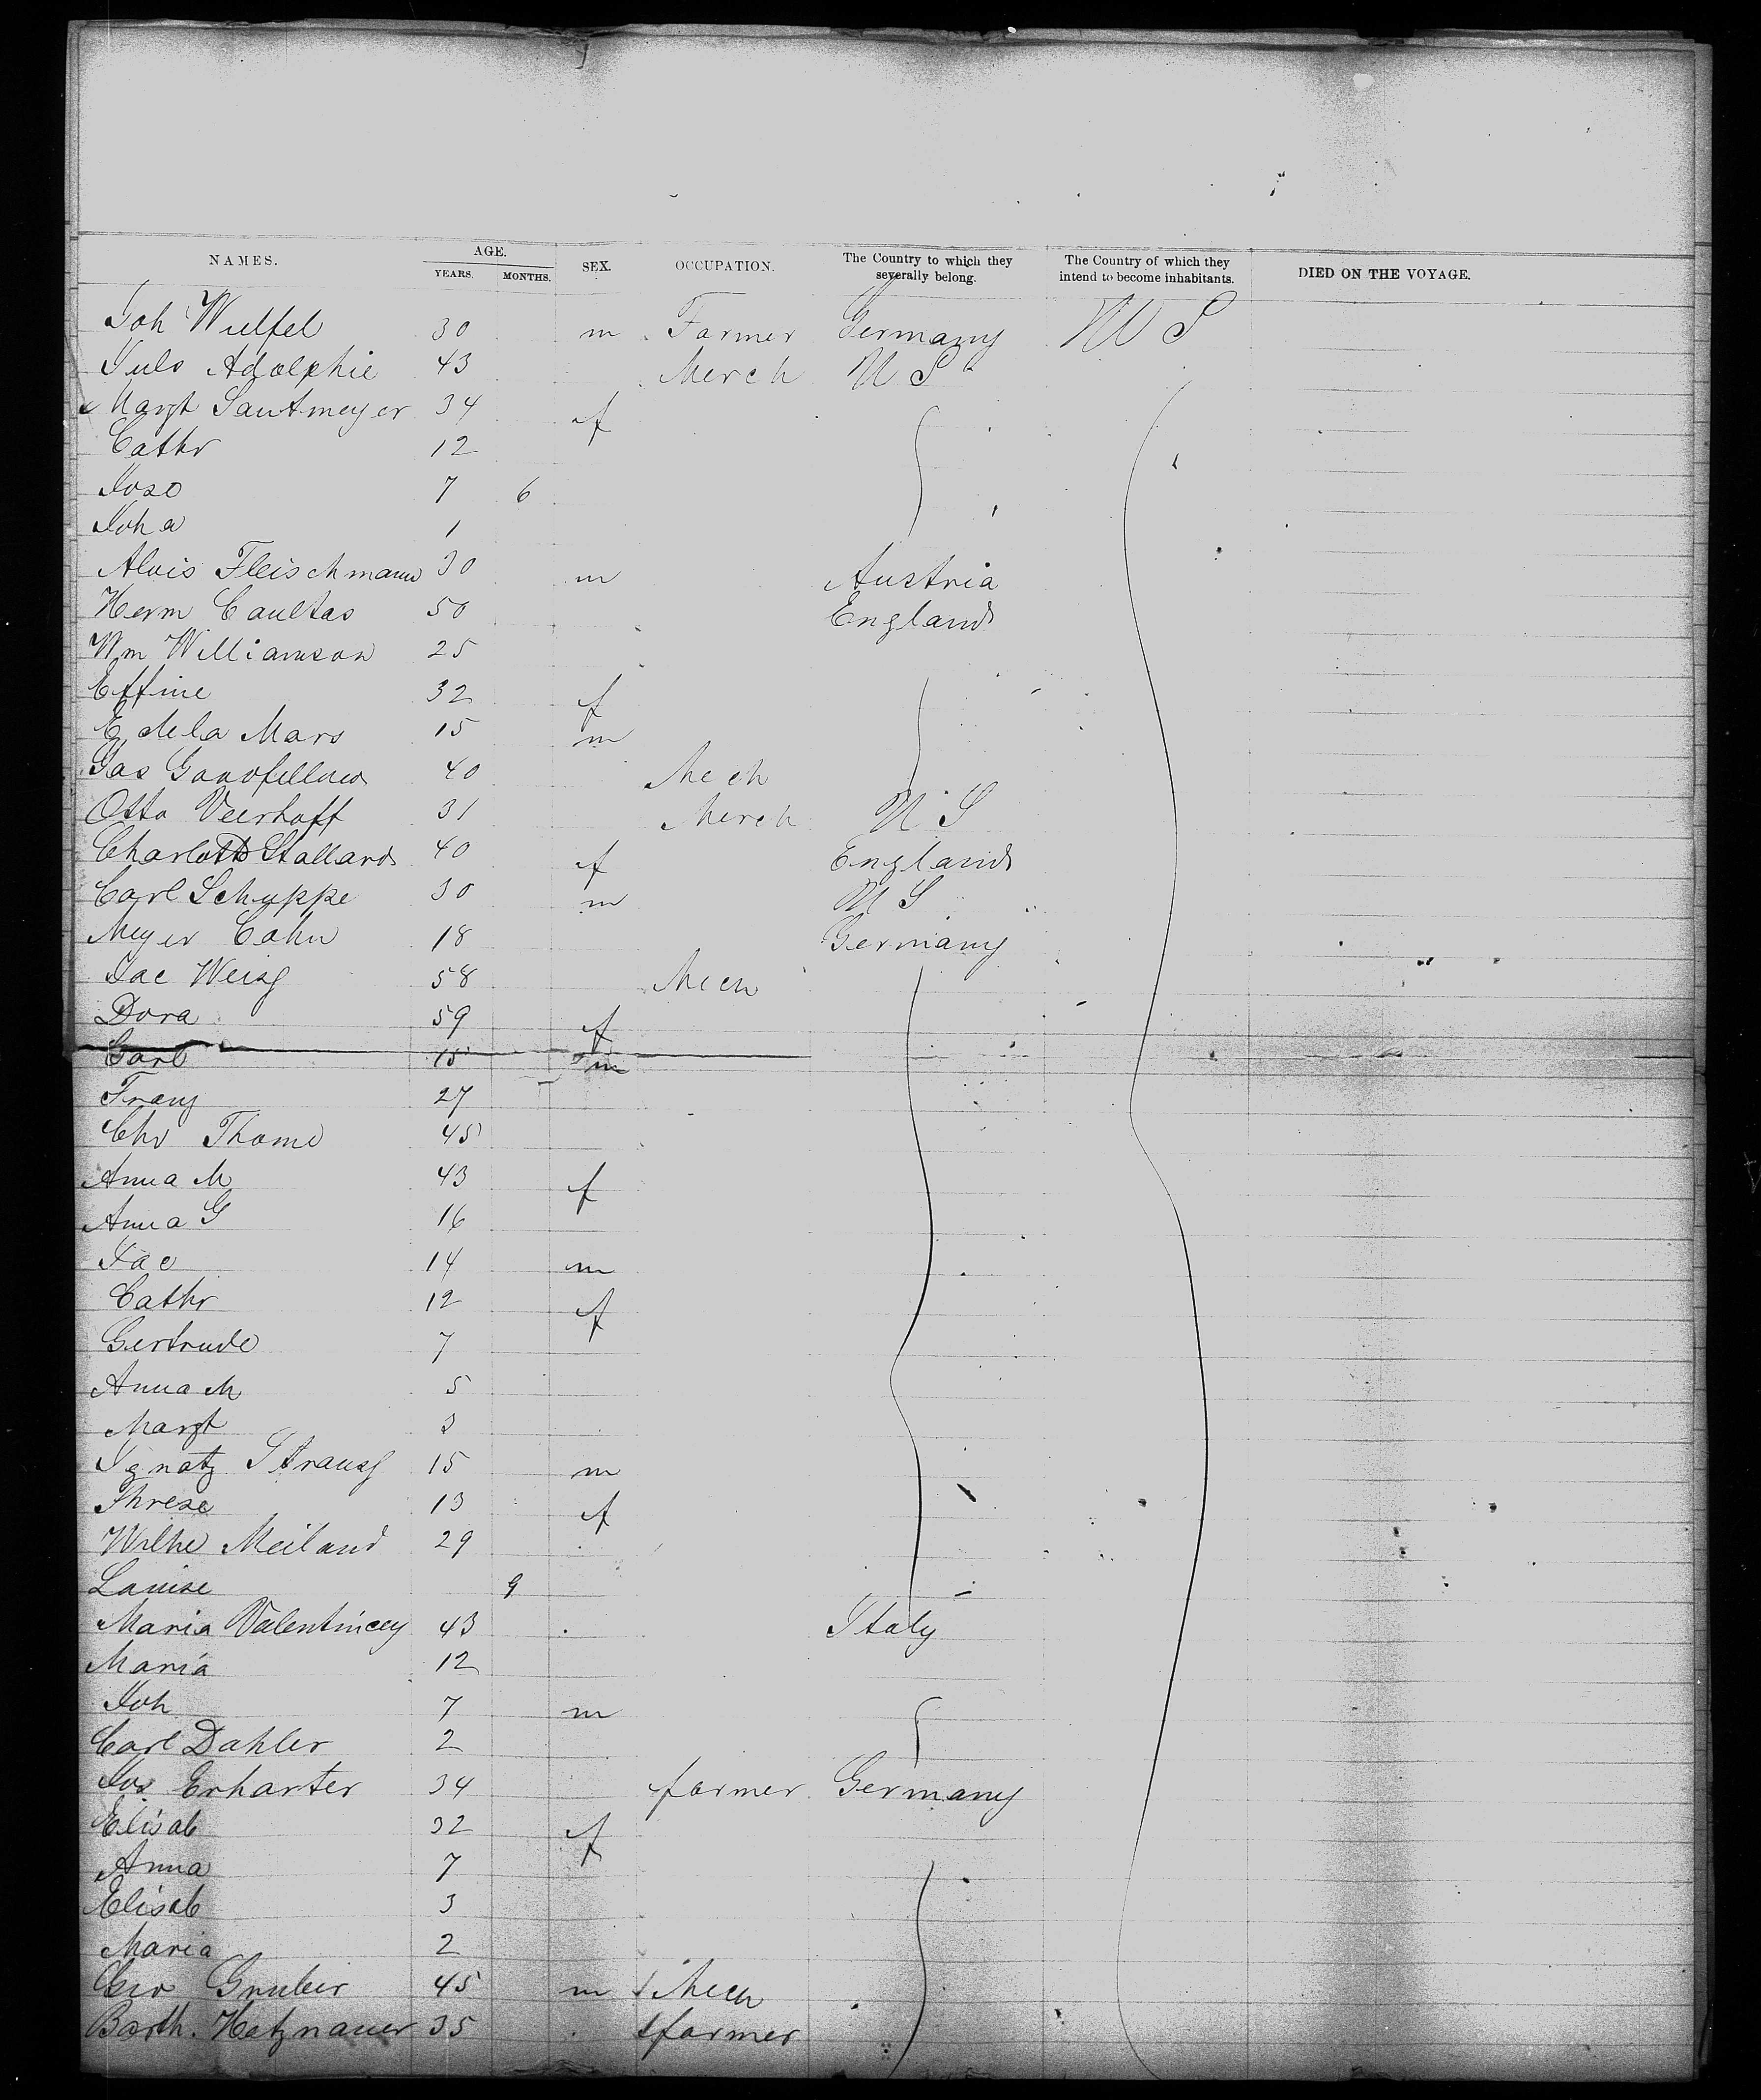 NAMES. AGE. YEARS. MONTHS. SEX. OCCUPATION. The Country to which they severally belong. The Country of which they intend to become inhabitants. DIED ON THE VOYAGE.
Joh Wulfel 30 m Farmer Germany U S
Juls Adolphie 43 Merch U S
Margt Sautmeyer 34 f
Cathr 12
Jose 7 6
Joha 1
Alois Fleischmann 30 m Austria
Herm Caultas 50 England
Wm Williamson 25
Effine 32 f
E de la Mars 15 m
Jas Goodfellow 40 Mech
Otto Veerhoff 31 Merch U S
Charlotte Stallard 40 f England
Carl Schuppe 30 m U S
Meyer Cohn 18 Germany
Jac Weiss 58 Mech
Dora 59 f
Carl 15 m
Franz 27
Chr Thome 45
Anna M 43 f
Anna G 16
Jac 14 m
Cathr 12 f
Gertrude 7
Anna M 5
Margt 3
Ignatz Strauss 15 m
Threse 13 f
Wilhe Meiland 29
Louise 9
Maria Valentincey 43 Italy
Maria 12
Joh 7 m
Carl Dahler 2
Jos Erharter 34 farmer Germany
Elisab 32 f
Anna 7
Elisab 3
Maria 2
Geo Gruber 45 m Mech
Barth. Hotznauer 35 farmer